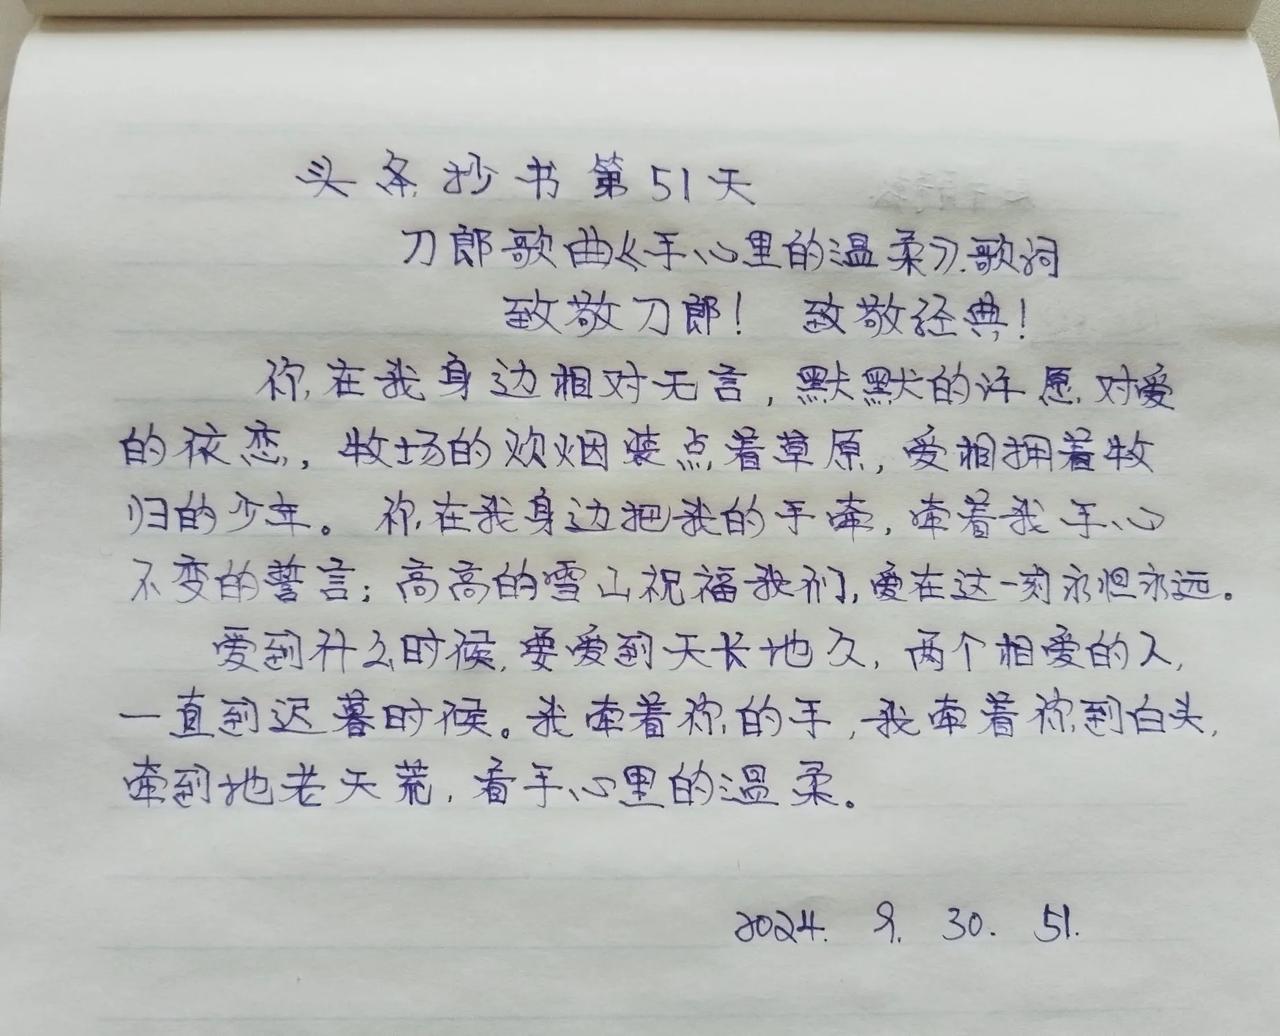 头条抄书第51天
刀郎歌曲《手心里的温柔》.歌词
致敬刀郎！ 致敬经典！
你在我身边相对无言，默默的许愿对爱
的依恋，牧场的炊烟装点着草原，爱相拥着牧
归的少年。你在我身边把我的手牵，牵着我手心
不变的誓言；高高的雪山祝福我们，爱在这一刻永恒永远。
爱到什么时候，要爱到天长地久，两个相爱的人，
一直到迟暮时候。我牵着你的手，我牵着你到白头，
牵到地老天荒，看手心里的温柔。
2024. 9. 30. 51.